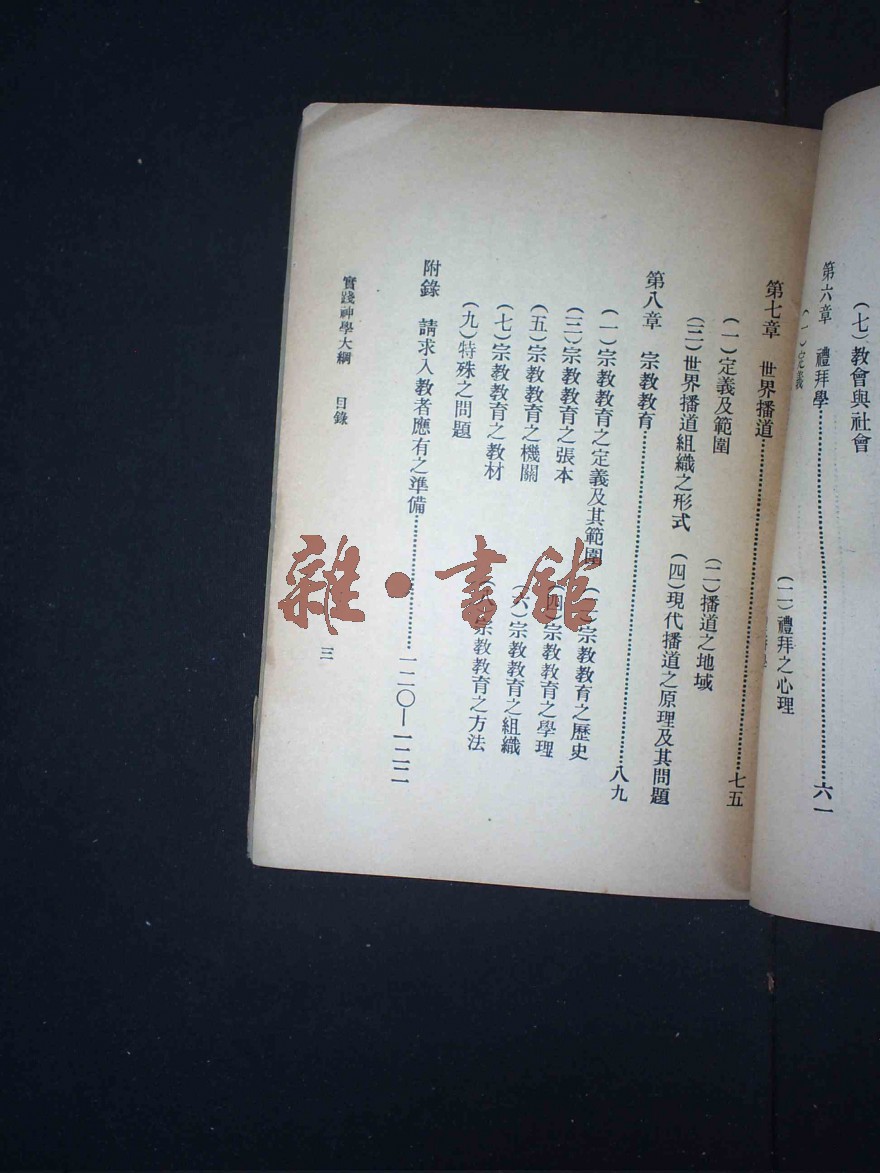 (七)教會與社會
第六章 禮拜學……六一
(一)定義 (二)禮拜之心理
第七章 世界播道……七五
(一)定義及範圍 (二)播道之地域
(三)世界播道組織之形式 (四)現代播道之原理及其問題
第八章 宗教教育……八九
(一)宗教教育之定義及其範圍 (二)宗教教育之歷史
(三)宗教教育之張本 (四)宗教教育之學理
(五)宗教教育之機關 (六)宗教教育之組織
(七)宗教教育之教材 宗教教育之方法
(九)特殊之問題
附錄 請求入教者應有之準備……一二〇—一二二
實踐神學大綱 目錄 三
雜·書館